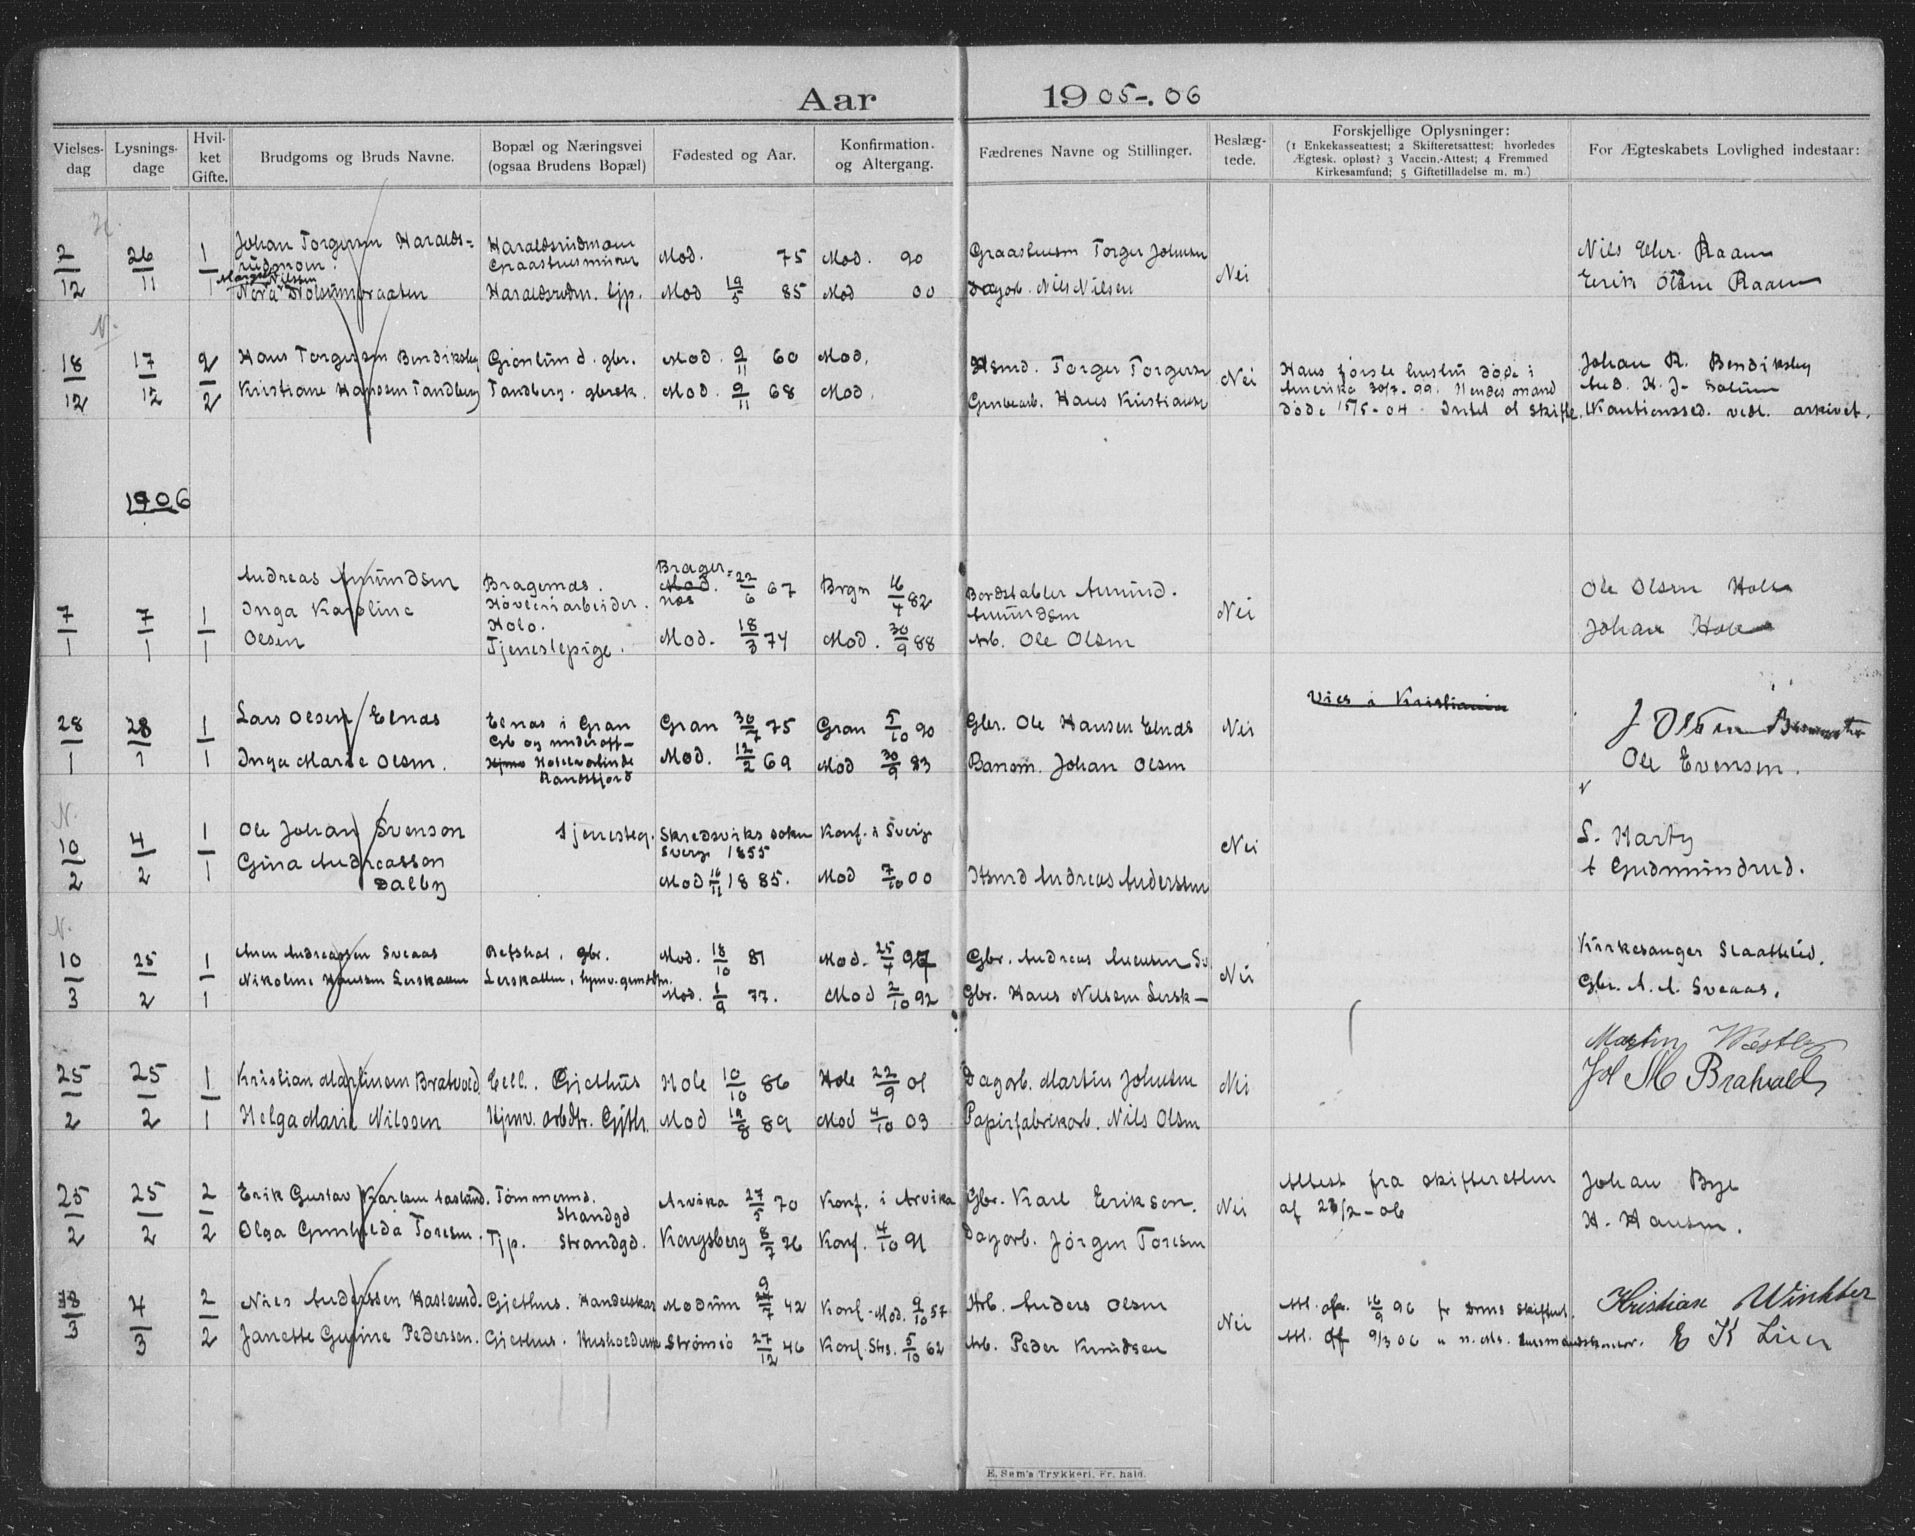 Aar 1905-06
Vielses-dag | Lysnings-dage | Hvil-ket Gifte. | Brudgoms og Bruds Navne. | Bopæl og Næringsvei (ogsaa Brudens Bopæl) | Fødested og Aar. | Konfirmation. og Altergang. | Fædrenes Navne og Stillinger. | Beslæg-tede. | Forskjellige Oplysninger: (1 Enkekasseattest; 2 Skifteretsattest; hvorledes Ægtesk. opløst? 3 Vaccin.-Attest; 4 Fremmed Kirkesamfund; 5 Giftetilladelse m. m.) | For Ægteskabets Lovlighed indestaar:
2/12 | 26/11 | 1/1 | Johan Torgersen Haralds=
Mod. 75 | Mod. 90 | Torger Johnsen | Nei | Nils Raaen
Haraldsrudm. tjp. | Mod 19/5 85 | Mod 00 | Dagarb. Nils Nilsen | Erik Olsen Raaen
N.
18/12 | 17/12 | 2/2 | Hans Torgersen Bendiksby | Grønlund. gbr. | Mod. 9/11 60 | Mod. | Hsmd. Torger Torgersen | Nei | Hans første hustru døde i | Johan R. Bendiksby
Kristiane Hansen Tandberg | Tandberg. gbrek. | Mod. 9/11 68 | Mod. | Hans Kristiansen | Amerika 30/7-99. Hendes mand | And. K. J. Solum
døde 15/5-04. Intet at skifte. | Kautionssed. vedl. arkivet.
1906
7/1 | 7/1 | 1/1 | Andreas Amundsen | Bragernæs. | Brager=næs 22/6 67 | Brgn 16/4 82 | Bordstabler Amund. Amundsen | Nei | Ole Olsen Hole
Inga Karoline | Høvleriarbeider.
Olsen | Holo. Tjenestepige. | Mod. 18/3 74 | Mod. 30/9 88 | Arb. Ole Olsen | Johan Hole
28/1 | 28/1 | 1/1 | Lars Olsen Elnæs | Elnæs i Gran | Gran 30/7 75 | Gran 5/10 90 | Gbr. Ole Hansen Elnæs | Nei | Vies i Kristiania | J Olsen
Inga Marie Olsen. | Hotelværtinde Randsfjord | Mod. 12/2 69 | Mod 30/9 83 | Banem. Johan Olsen | Ole Evensen.
N.
10/2 | 4/2 | 1/1 | Ole Johan Svenson | tjenesteg. | Skredsviks soken Sverg 1855 | Konf. i Sverg | Nei | L. Harby
Gina Andreasson Dalby | Mod 16/11 1885. | Mod 7/10 00 | Hsmd Andreas Anderssen | A Gudmundrud.
N.
10/3 | 25/2 | 1/1 | Anen Andreassen Sveaas | Refshal. gbr. | Mod. 18/10 81 | Mod. 25/4 97 | Gbr. Andreas Anensen Sv. | Nei | Kirkesanger Slaattelid.
Nikoline Hanssen Lerskallen | Lerskallen, | Mod. 1/9 77. | Mod 2/10 92 | Gbr. Hans Nilsen Lersk- | Gbr. A. A. Sveaas.
25/2 | 25/2 | 1/1 | Kristian Martinsen Bratvold | Cell. Gjethus | Hole 10/10 86 | Hole 22/9 01 | Dagarb. Martin Johnsen | Nei | Martin Westby
Jol M Bratvald
Helga Marie Nilssen | Hjmv. arbdr. Gjth. | Mod 19/8 89 | Mod 4/10 03 | Papirfabrikarb. Nils Olsen
25/2 | 25/2 | 2/2 | Erik Gustav Karlsen | Tømmermd. Strandgd | Arvika 27/5 70 | Konf. i Arvika | Gbr. Karl Erikson. | Nei | Attest fra skifteretten af 23/2-06 | Johan Bye
Olga Gunhilda Toresen. | Tjp. Strandgd. | Kongsberg 8/7 76 | Konf. 4/10 91 | Dagarb. Jørgen Toresen | H. Hansen.
18/3 | 4/3 | 2/2 | Nils Anderssen Haslerud. | Gjethus. Handelskar | Modum 9/7 42 | Konf. Mod. 9/10 57 | Arb. Anders Olsen | Nei | Att. af 16/9 96 fr Drms skifteret. | Kristian Winkler
Janette Gurine Pedersen. | Gjethus. | Strømsø 27/12 46 | Konf. Strs. 5/10 62 | Arb. Peder Knudsen | Att. af 9/3 06 | E K Lier
E. Sem's Trykkeri, Fr. hald.